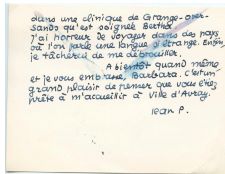 dans une clinique de Grange-over-
Sands qu'est soignée Bertha.
J'ai horreur de voyager dans des pays
où l'on parle une langue étrange. Enfin,
je tâcherai de me débrouiller.
A bientôt quand même
et je vous embrasse, Barbara. C'est un
grand plaisir de penser que vous êtes
prête à m'accueillir à Ville d'Avray.
Jean P.